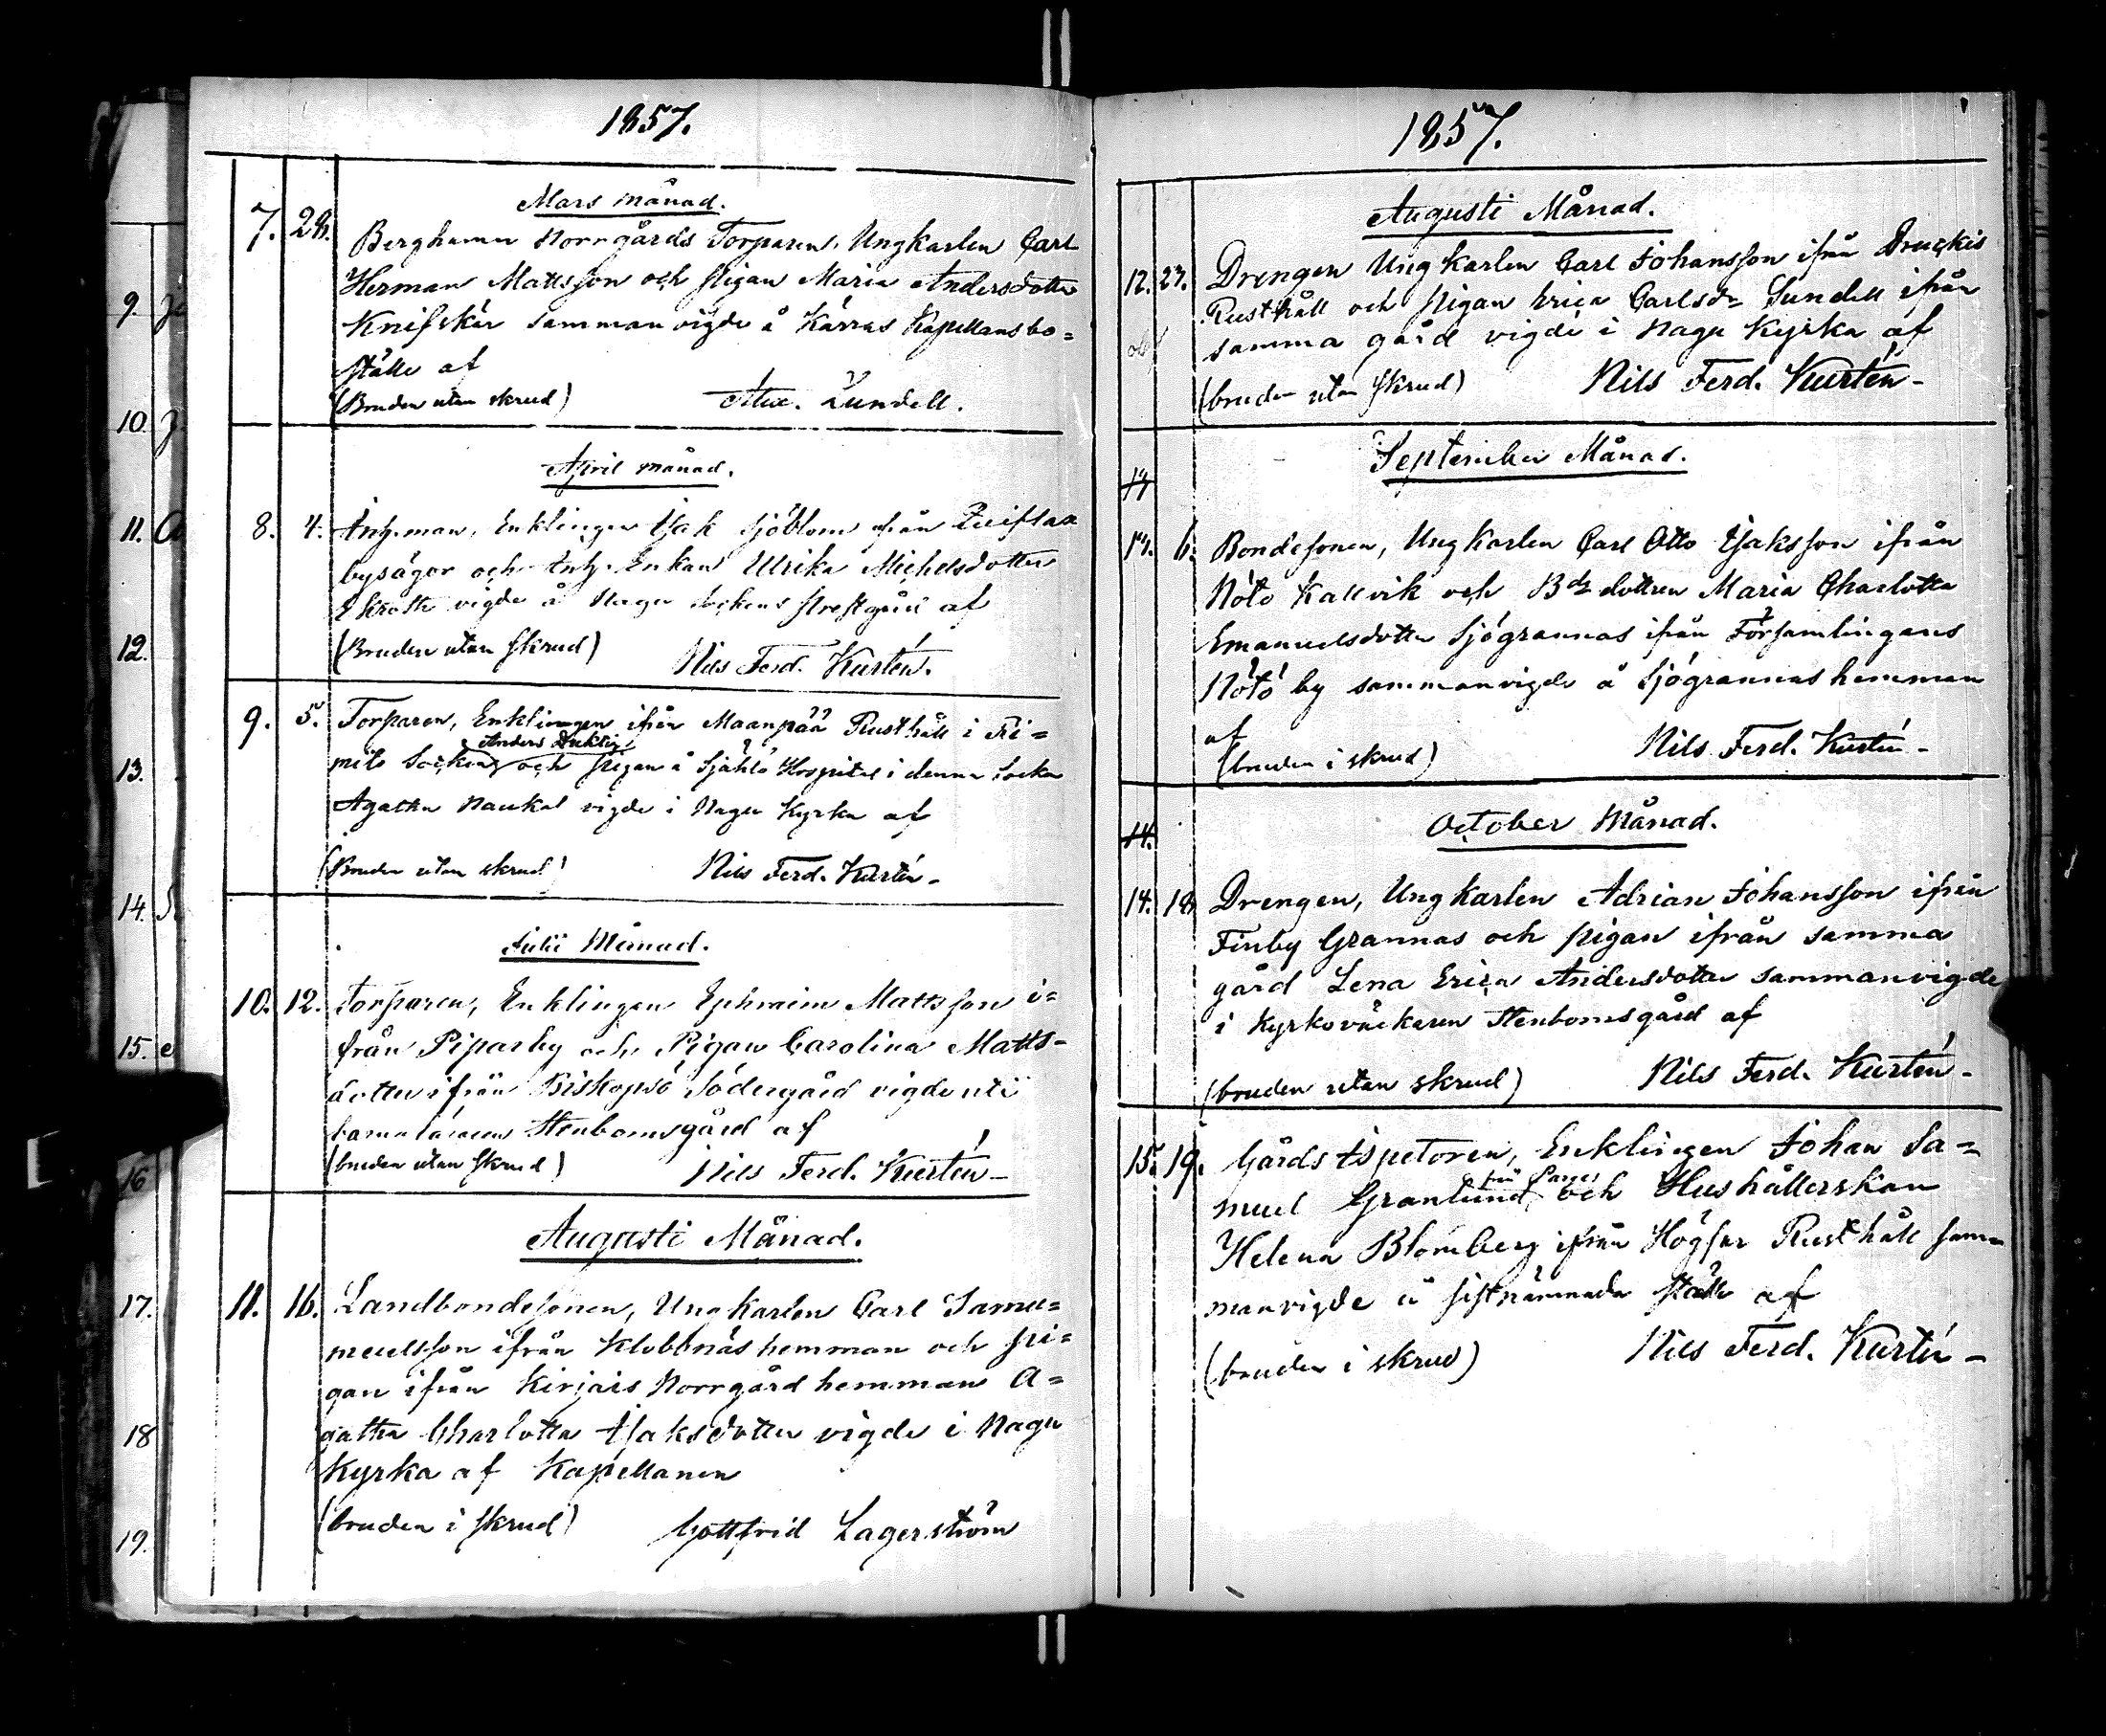 1857.
Mars månad.
7. 28. Berghamn Norrgårds Torparen, Ungkarlen Carl
Herman Mattsson och Pigan Maria Andersdotter
Knifskär sammanvigde å Kärras Kapellansbo=
ställe af
(Bruden utan skrud) Alex. Lundell.
April månad.
8. 4. Inh.man, Enklingen Isak Sjöblom från
bysägor och Inh. Enkan Ulrika Michelsdotter
vigde å Nagu Sockens Prestgård af
(Bruden utan skrud) Nils Ferd. Kurtén.
9. 5. Torparen, Enklingen ifrån Maanpää Rusthåll i Ri=
Anders Duktig
mito Socken och Pigan å Själö Hospital i denna Socken
Agatha Naukal vigde i Nagu Kyrka af
(Bruden utan skrud) Nils Ferd. Kurtén
Julii Månad.
10. 12. Torparen, Enklingen Ephraim Mattsson i=
från Piparby och Pigan Carolina Matts=
dotter ifrån Biskopsö Södergård vigde uti
Stenbomsgård af
(bruden utan skrud) Nils Ferd. Kurtén
Augusti Månad.
11. 16. Landbondesonen, Ungkarlen Carl Samu=
muelsson ifrån Klobbnäs hemman och Pi=
gan ifrån Kirjais Norrgård hemman A=
gatha Charlotta Isaksdotter vigde i Nagu
Kyrka af Kapellanen
(bruden i skrud) Gottfrid Lagerström
1857.
Augusti Månad.
12. 23. Drengen Ungkarlen Carl Johansson ifrån Druckis
Rusthåll och Pigan Erica Carlsdr Sundell ifrån
samma gård vigde i Nagu Kyrka af
(bruden utan skrud) Nils Ferd. Kurtén
September Månad.
13. 6. Bondesonen, Ungkarlen Carl Otto Isaksson ifrån
Nötö Kallvik och Bde dottren Maria Charlotta
Emanuelsdotter Sjögrannas ifrån Församlingens
Nötö by sammanvigde å Sjögrannas hemman
af
(bruden i skrud) Nils Ferd. Kurtén
October Månad.
14.
14. 18. Drengen, Ungkarlen Adrian Johansson ifrån
Finby Grannas och pigan ifrån samma
gård Lena Erica Andersdotter sammanvigde
i Kyrkoväktaren Stenbomsgård af
(bruden utan skrud) Nils Ferd. Kurtén
15. 19. Gårds Ispetoren, Enklingen Johan Sa=
muel Granlund och Hushållerskan
Helena Blomberg ifrån Högsar Rusthåll sam
manvigde å sistnämnda ställe af
(bruden i skrud) Nils Ferd. Kurtén
9.
10.
11.
12.
13.
14.
15.
16
17.
18
19.